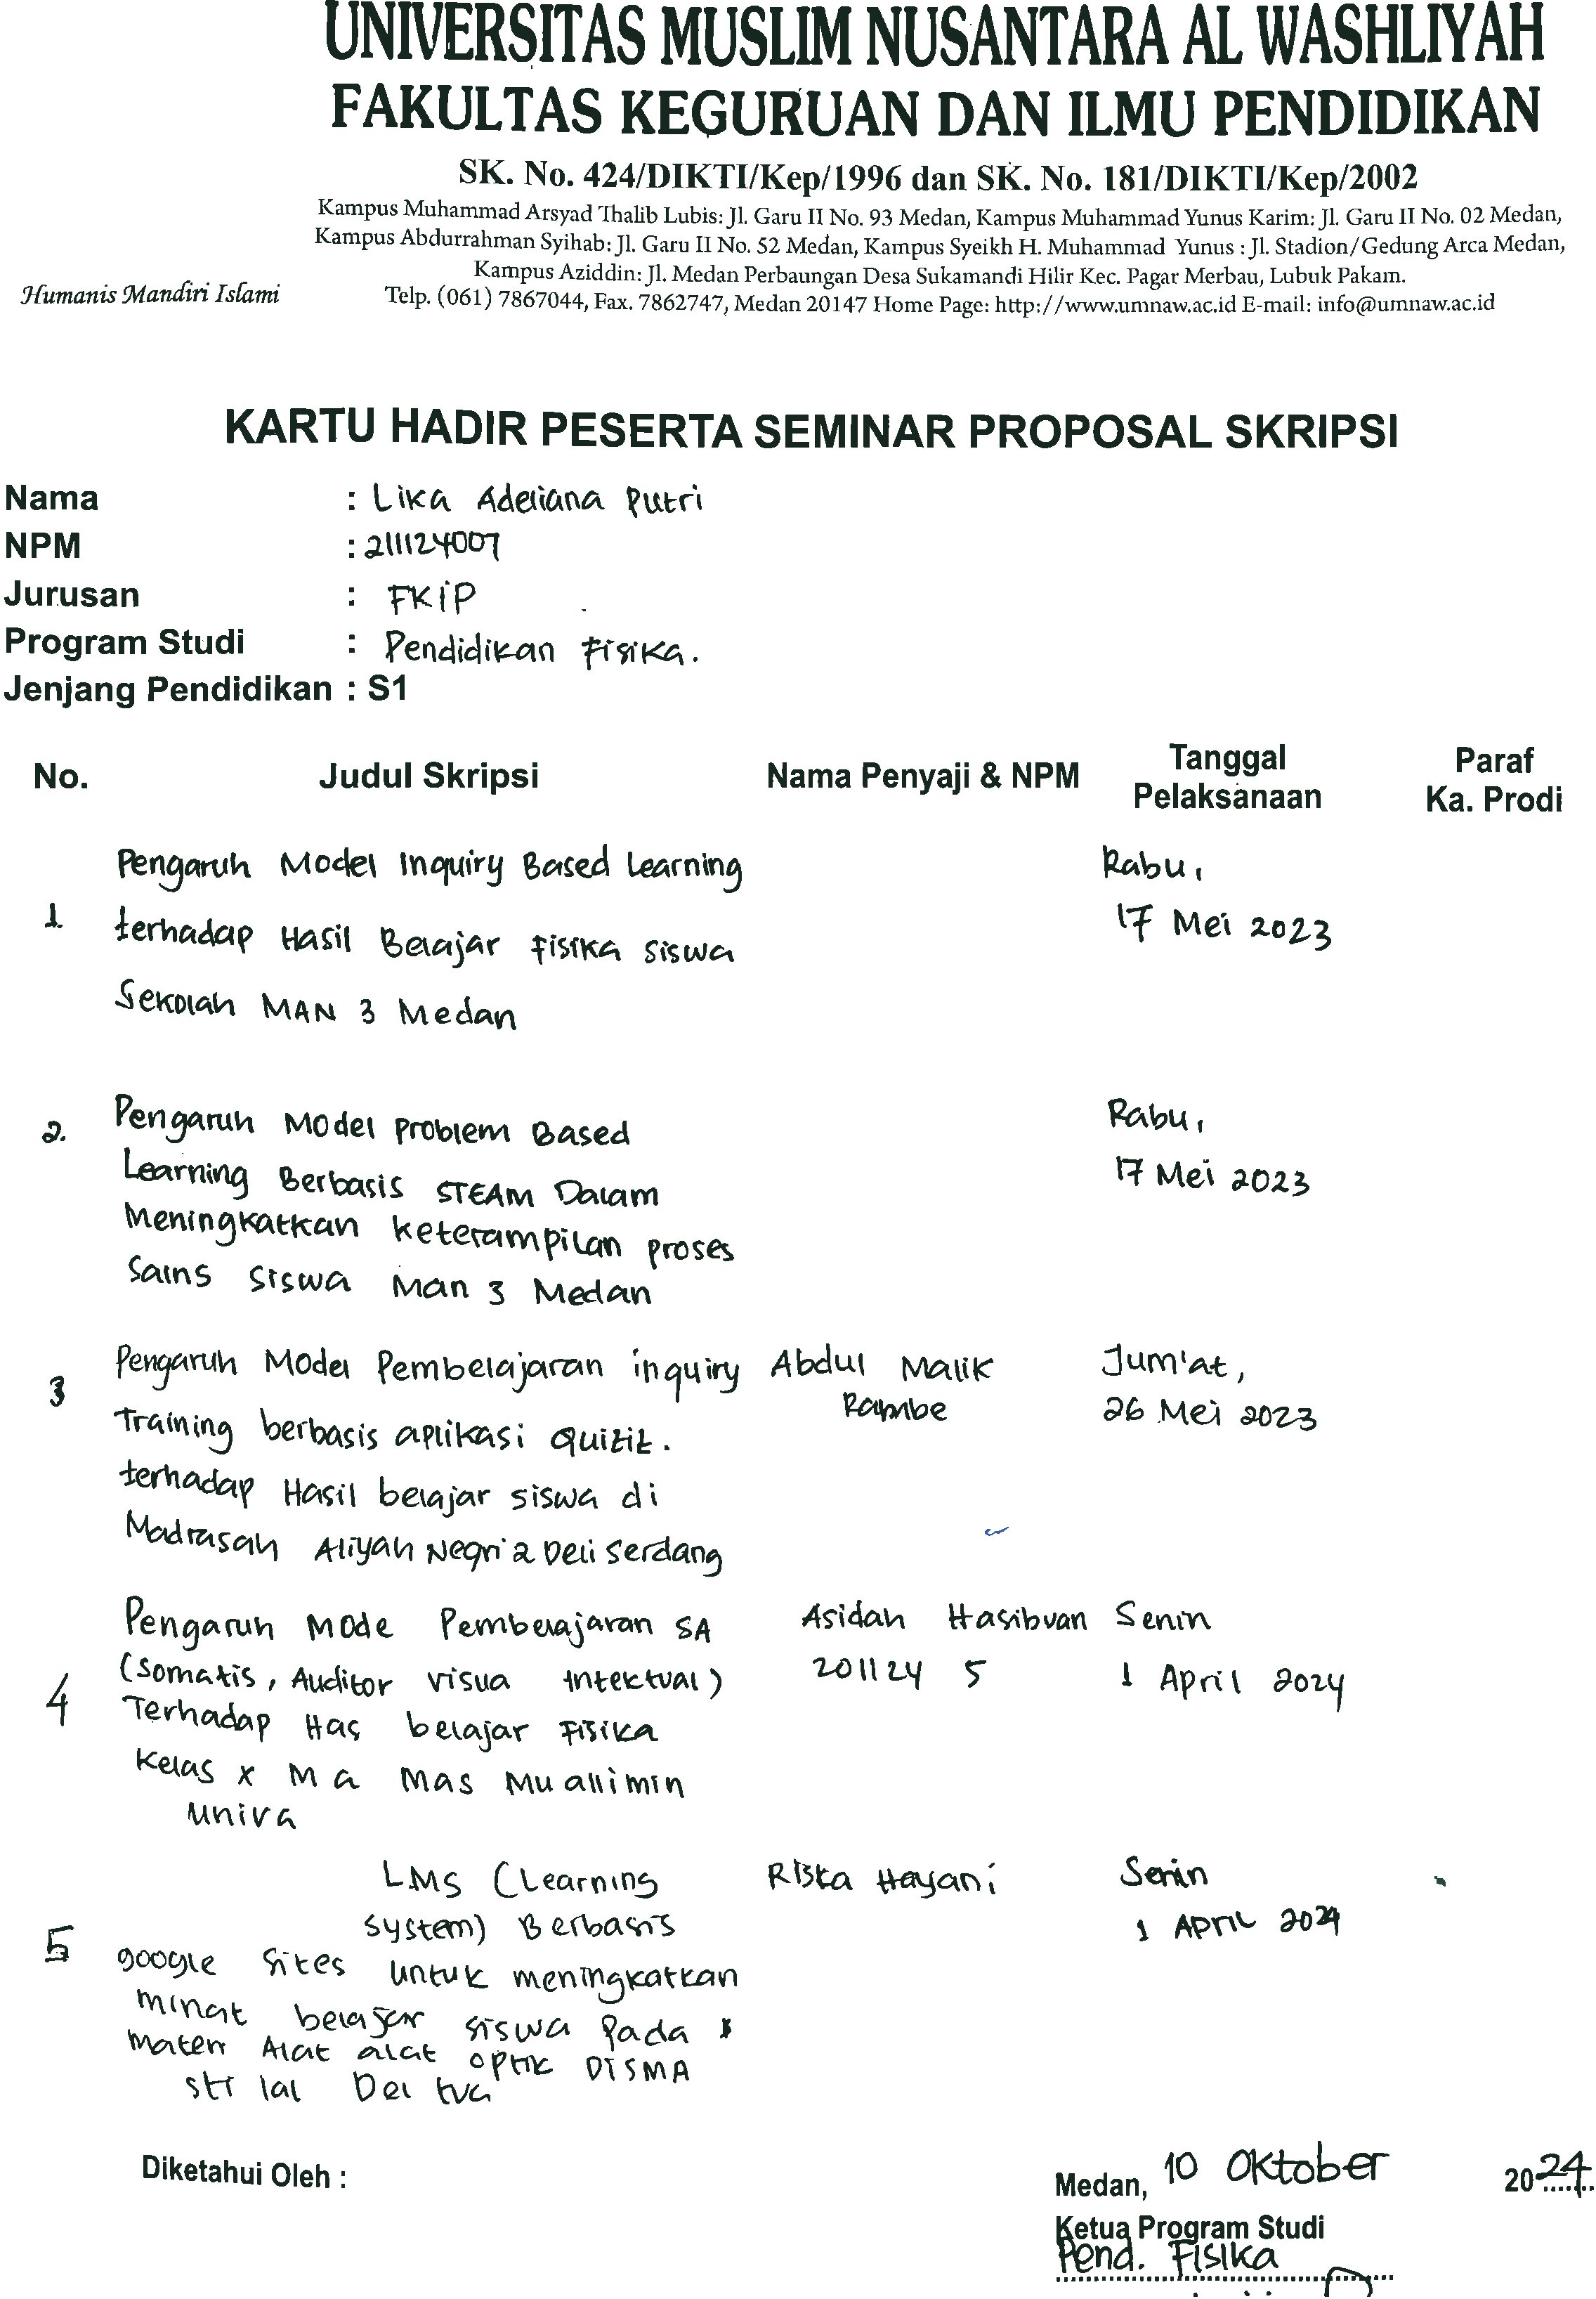 UNIVERSITAS MUSLIM NUSANTARA AL WASHLIYAH
FAKULTAS KEGURUAN DAN ILMU PENDIDIKAN
SK. No. 424/DIKTI/Kep/1996 dan SK. No. 181/DIKTI/Kep/2002
Kampus Muhammad Arsyad Thalib Lubis: Jl. Garu II No. 93 Medan, Kampus Muhammad Yunus Karim: Jl. Garu II No. 02 Medan,
Kampus Abdurrahman Syihab: Jl. Garu II No. 52 Medan, Kampus Syeikh H. Muhammad Yunus : Jl. Stadion/Gedung Arca Medan,
Kampus Aziddin: Jl. Medan Perbaungan Desa Sukamandi Hilir Kec. Pagar Merbau, Lubuk Pakam.
Humanis Mandiri Islami Telp. (061) 7867044, Fax. 7862747, Medan 20147 Home Page: http://www.umnaw.ac.id E-mail: info@umnaw.ac.id
KARTU HADIR PESERTA SEMINAR PROPOSAL SKRIPSI
Nama : Lika Adeliana Putri
NPM : 211124007
Jurusan : FKIP
Program Studi : Pendidikan Fisika.
Jenjang Pendidikan : S1
No. Judul Skripsi Nama Penyaji & NPM Tanggal Pelaksanaan Paraf Ka. Prodi
Pengaruh Model Inquiry Based Learning Rabu,
1. terhadap Hasil Belajar Fisika Siswa 17 Mei 2023
Sekolah MAN 3 Medan
2. Pengaruh Model Problem Based Rabu,
Learning Berbasis STEAM Dalam 17 Mei 2023
Meningkatkan keterampilan proses
Sains Siswa Man 3 Medan
3 Pengaruh Model Pembelajaran inquiry Abdul Malik Jum'at,
Training berbasis aplikasi Quizit. Rambe 26 Mei 2023
terhadap Hasil belajar siswa di
Madrasah Aliyah Negri 2 Deli Serdang
Pengaruh Mode Pembelajaran SA Asidah Hasibuan Senin
4 (Somatis, Auditor visua intektual) 201124 5 1 April 2024
Terhadap Has belajar Fisika
Kelas X M a Mas Mu allimin
Univa
LMS (Learning Riska Hayani Senin
5 System) Berbasis 1 APRIL 2024
google Sites Untuk meningkatkan
minat belajar siswa Pada
Materi Alat alat OPtik DISMA
Diketahui Oleh :
Medan, 10 Oktober 2024
Ketua Program Studi
Pend. Fisika